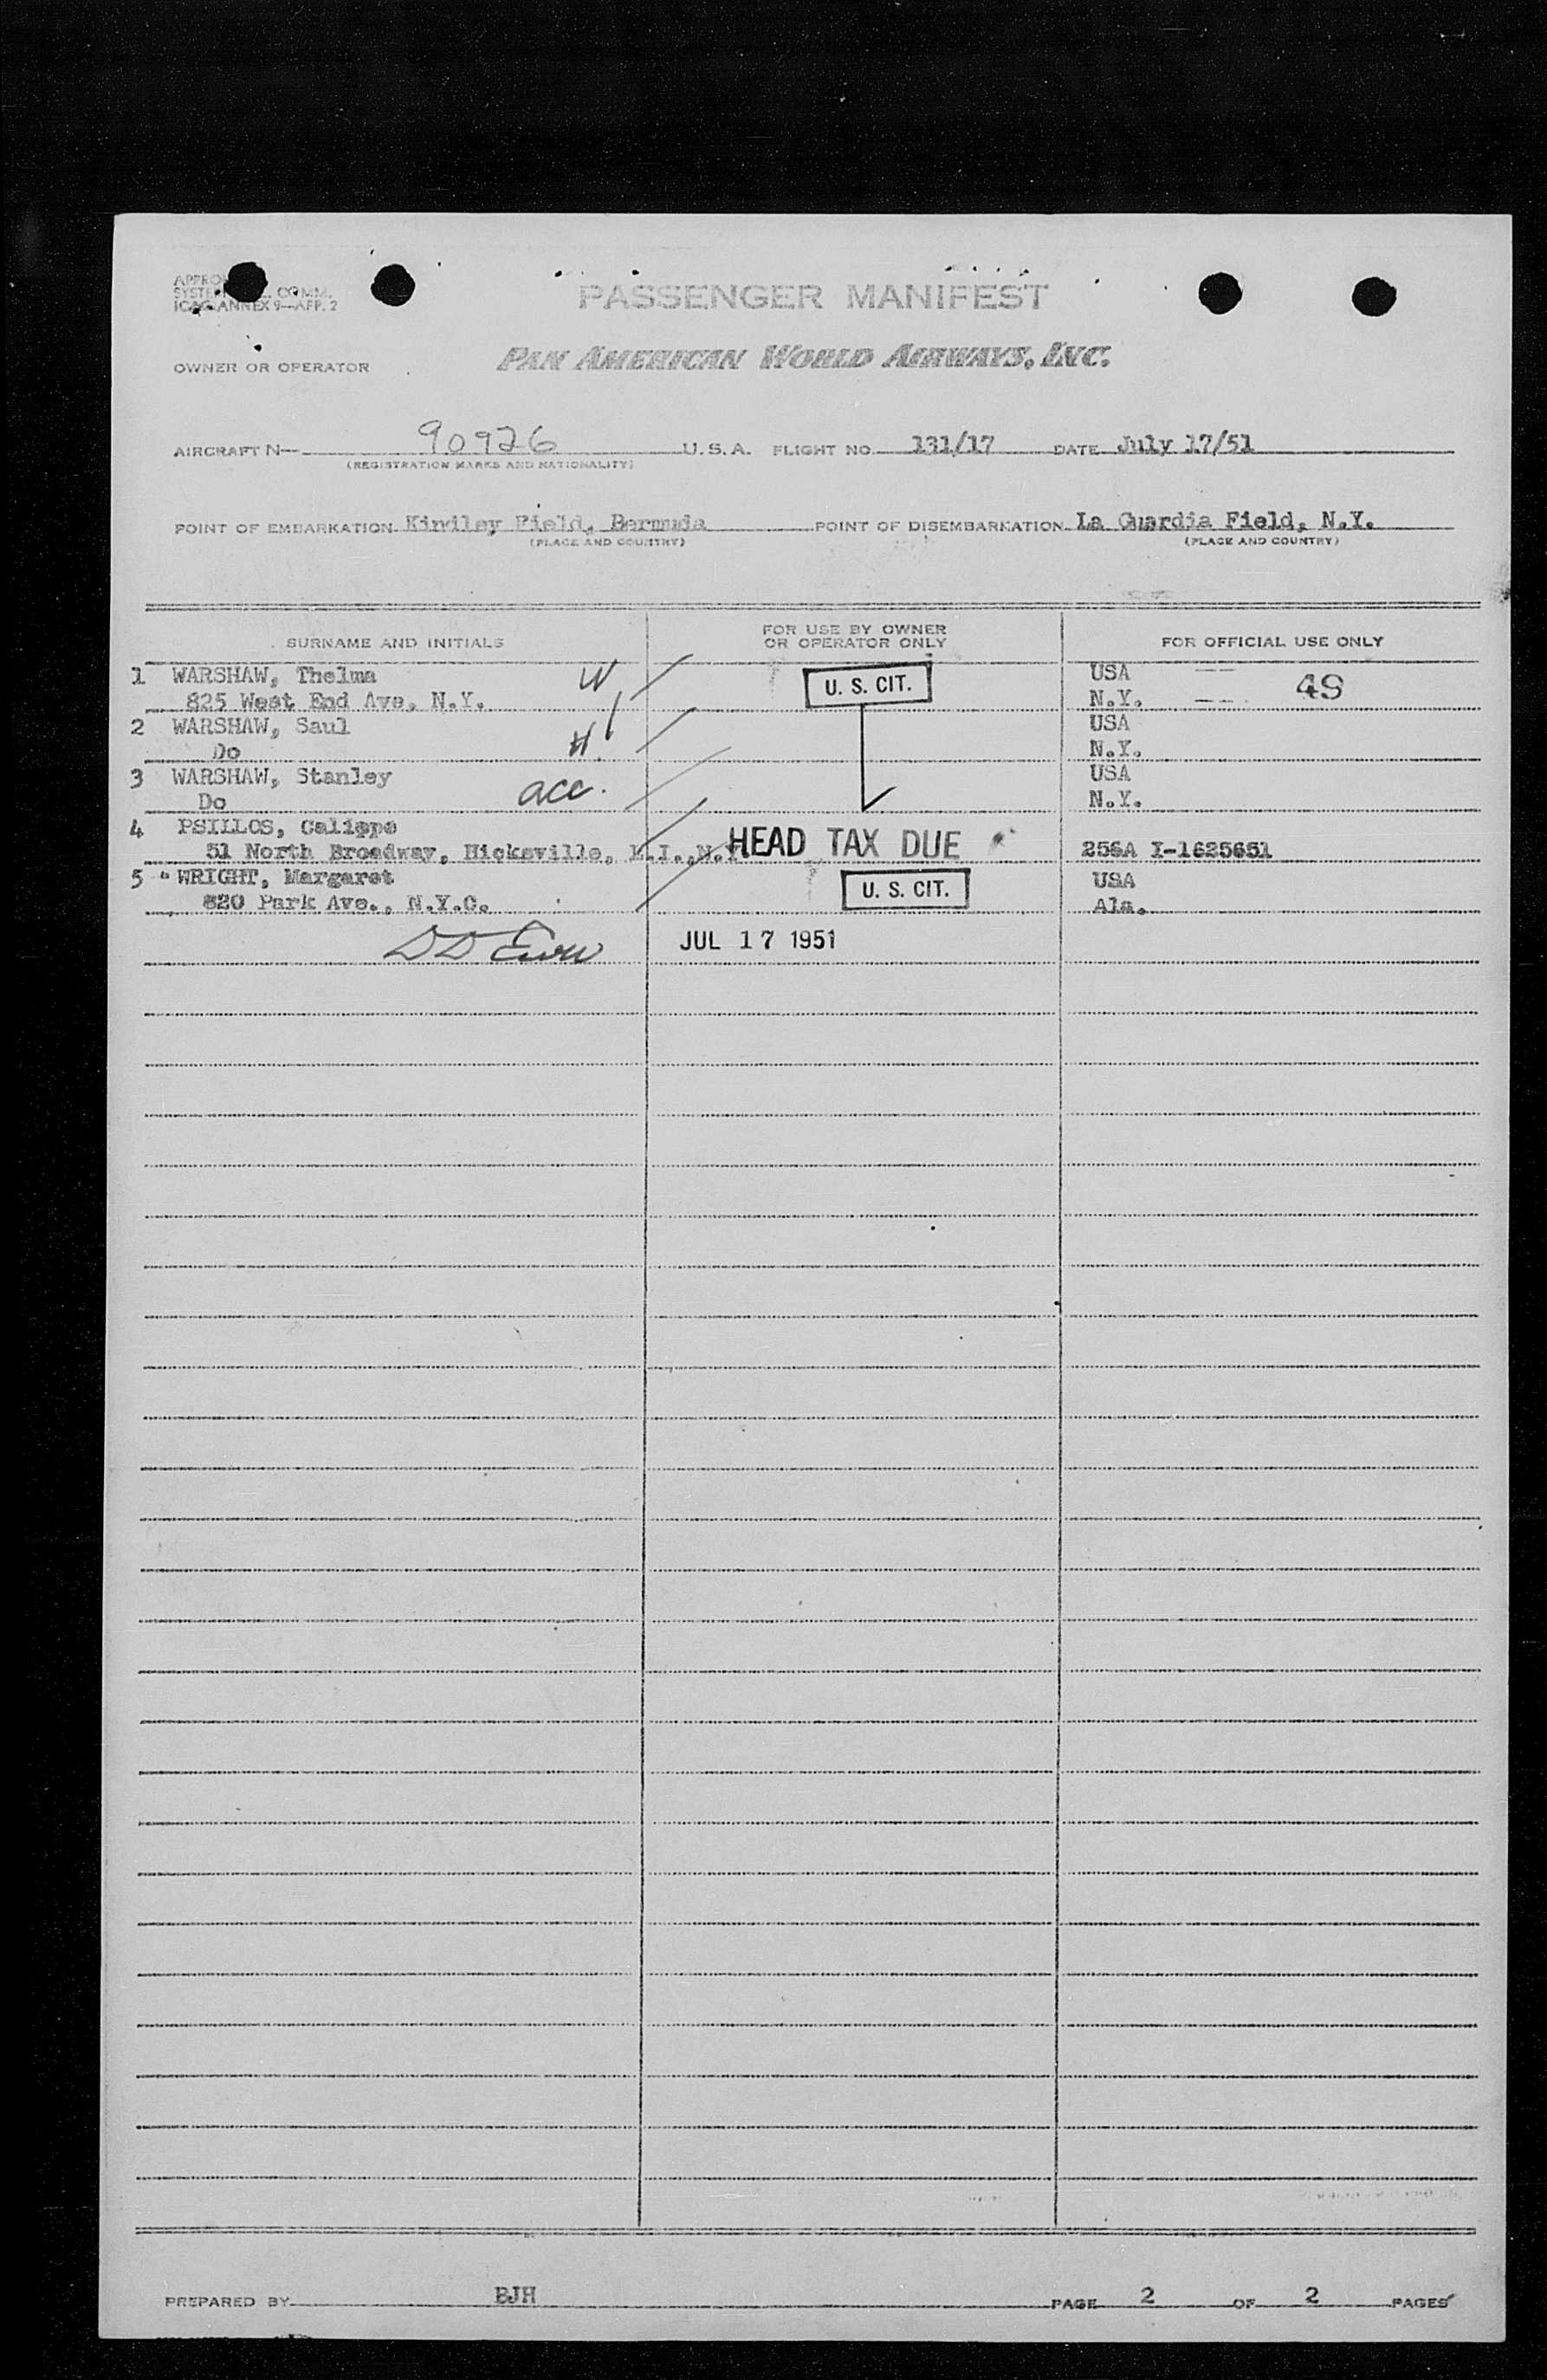 PASSENGER MANIFEST
COMM.
ICAO ANNEX 9—APP. 2
OWNER OR OPERATOR PAN AMERICAN WORLD AIRWAYS, INC.
AIRCRAFT N— 90926 U.S.A. FLIGHT NO. 131/17 DATE July 17/51
(REGISTRATION MARKS AND NATIONALITY)
POINT OF EMBARKATION Kindley Field, Bermuda POINT OF DISEMBARKATION La Guardia Field, N.Y.
(PLACE AND COUNTRY) (PLACE AND COUNTRY)
SURNAME AND INITIALS FOR USE BY OWNER OR OPERATOR ONLY FOR OFFICIAL USE ONLY
1 WARSHAW, Thelma W U. S. CIT. USA 49
825 West End Ave, N.Y. N.Y.
2 WARSHAW, Saul USA
Do H. N.Y.
3 WARSHAW, Stanley acc. USA
Do N.Y.
4 PSILLOS, Caliope
51 North Broadway, Hicksville, L.I., N.Y. HEAD TAX DUE 256A I-1625651
5 WRIGHT, Margaret U. S. CIT. USA
820 Park Ave., N.Y.C. Ala.
JUL 17 1951
PREPARED BY BJH PAGE 2 OF 2 PAGES